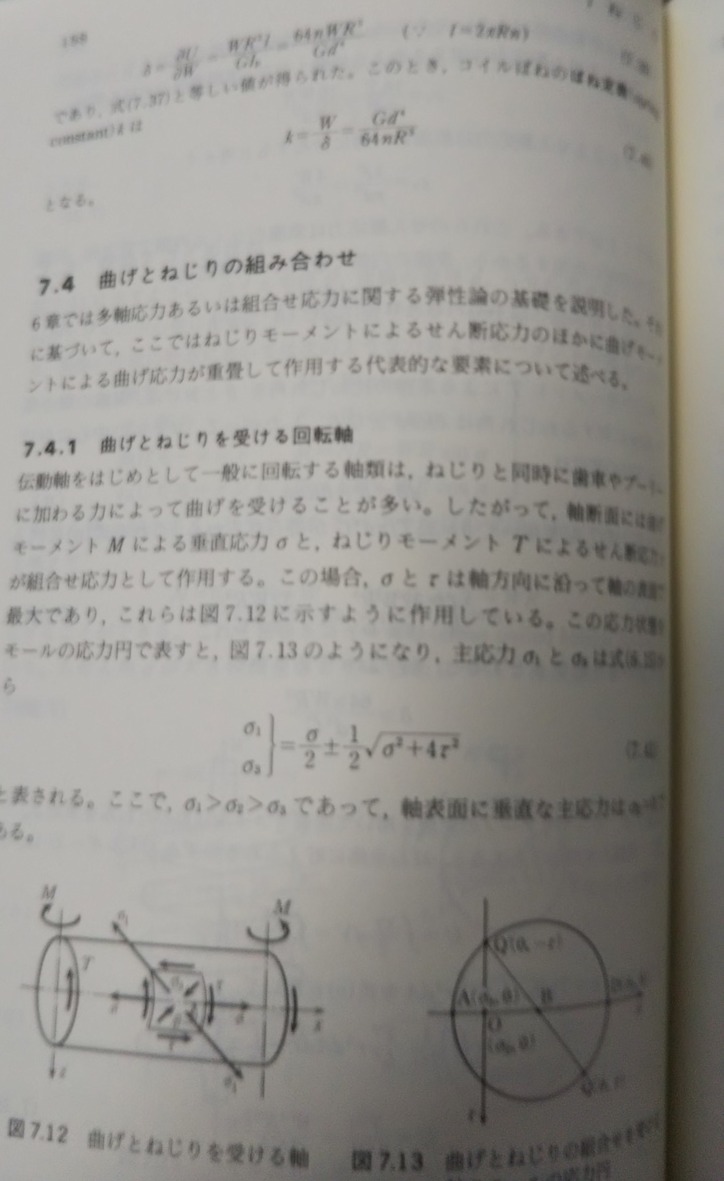 δ = ∂U/∂W = WR²l/GIₚ = 64nWR³/Gd⁴ (∵ l=2πRn)
であり，式(7.37)と等しい値が得られた。このとき，コイルばねのばね定数
constant) k は
k = W/δ = Gd⁴/64nR³
となる。
7.4 曲げとねじりの組み合わせ
6章では多軸応力あるいは組合せ応力に関する弾性論の基礎を説明した。
に基づいて，ここではねじりモーメントによるせん断応力のほかに曲げモーメ
ントによる曲げ応力が重畳して作用する代表的な要素について述べる。
7.4.1 曲げとねじりを受ける回転軸
伝動軸をはじめとして一般に回転する軸類は，ねじりと同時に歯車やプーリー
に加わる力によって曲げを受けることが多い。したがって，軸断面には曲げ
モーメント M による垂直応力 σ と，ねじりモーメント T によるせん断応力
が組合せ応力として作用する。この場合，σ と τ は軸方向に沿って軸の表面で
最大であり，これらは図7.12に示すように作用している。この応力状態を
モールの応力円で表すと，図7.13のようになり，主応力 σ₁ と σ₃ は式
ら
σ₁ σ₃ } = σ/2 ± 1/2 √(σ²+4τ²)
と表される。ここで，σ₁>σ₂>σ₃ であって，軸表面に垂直な主応力は
ある。
M
M
σ₁
T
τ
σ
σ
x
z
σ₁
Q(0, −τ)
A(σ₃, 0)
B
O
(σ₂, 0)
τ
図7.12 曲げとねじりを受ける軸
図7.13 曲げとねじりの組合せを受ける
の応力円